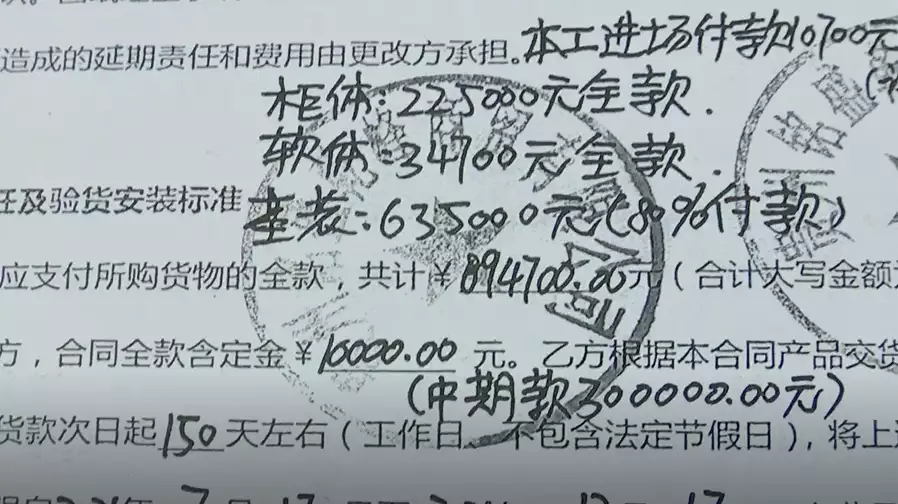 造成的延期责任和费用由更改方承担。本工进场付款10700元
柜体:225000元全款.
软体:34700元全款.
任及验货安装标准
整装:635000元(80%付款)
应支付所购货物的全款，共计￥894700.00元（合计大写金额
方，合同全款含定金￥10000.00 元。乙方根据本合同产品交货
(中期款300000.00元)
货款次日起150天左右（工作日，不包含法定节假日），将上